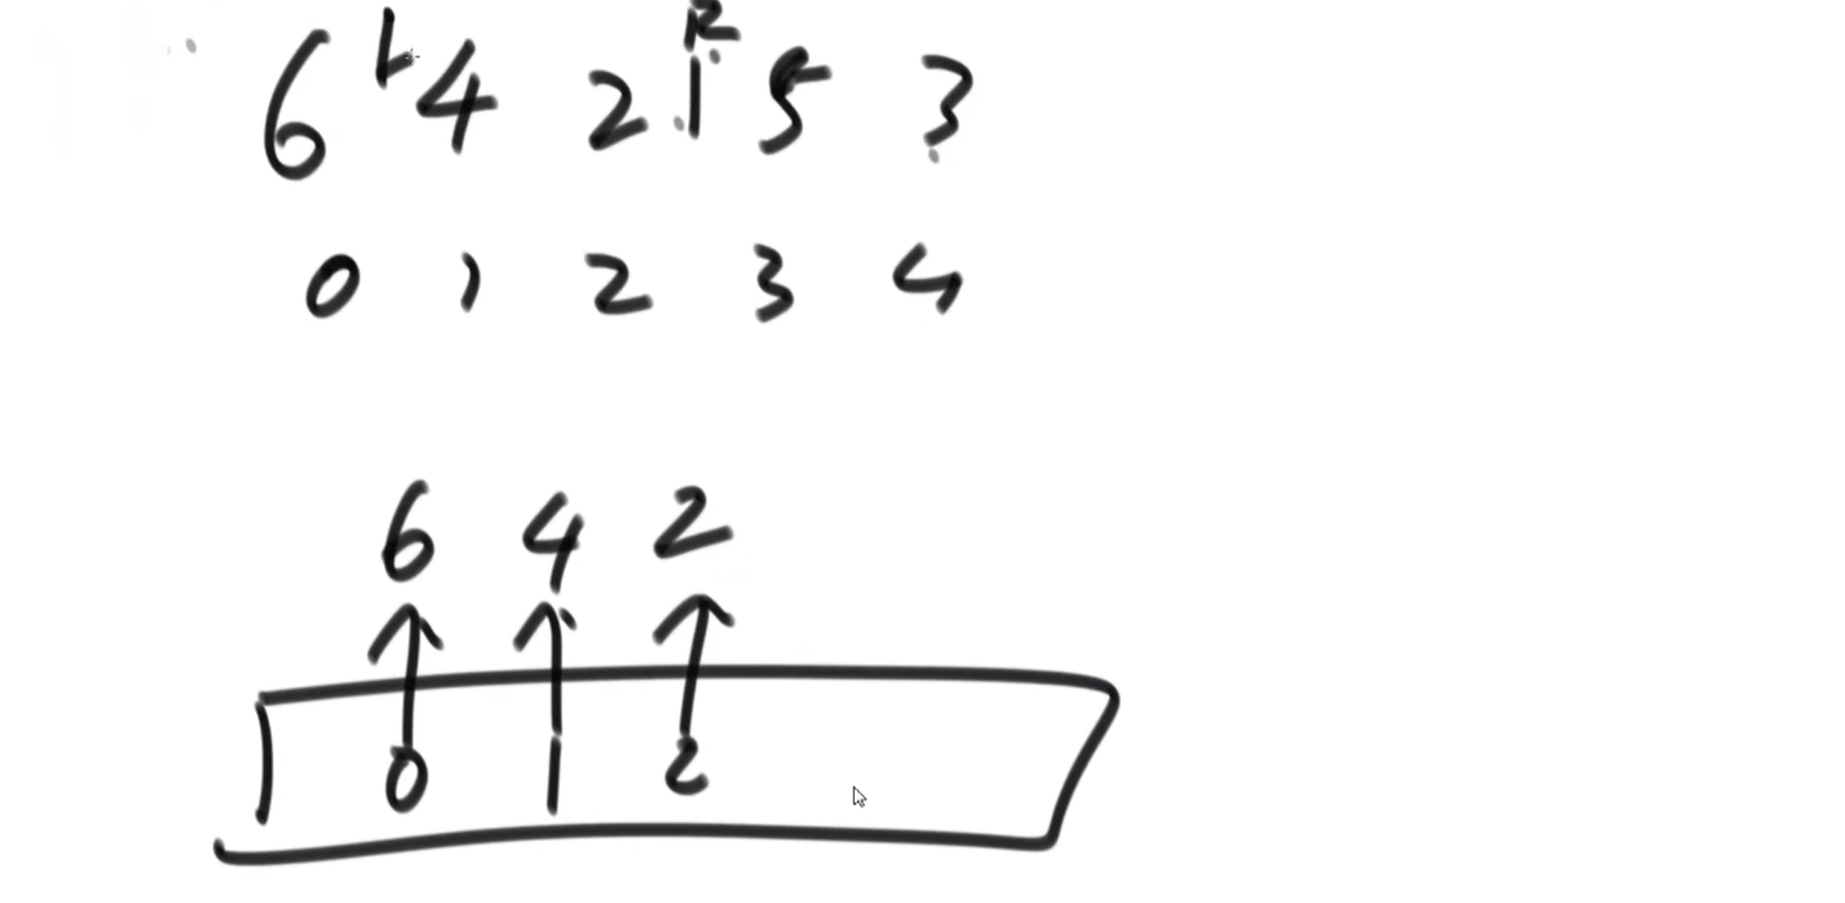 L R
6 4 2 | 5 3
0 1 2 3 4
6 4 2
0 1 2